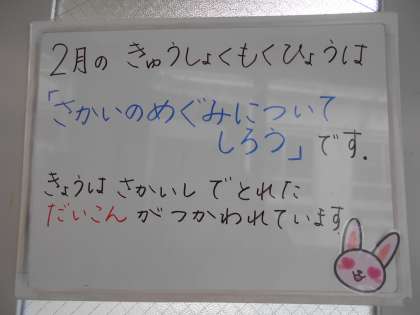 2月の きゅうしょくもくひょうは
「さかいのめぐみについて
しろう」です.
きょうは さかいし でとれた
だいこん がつかわれています.